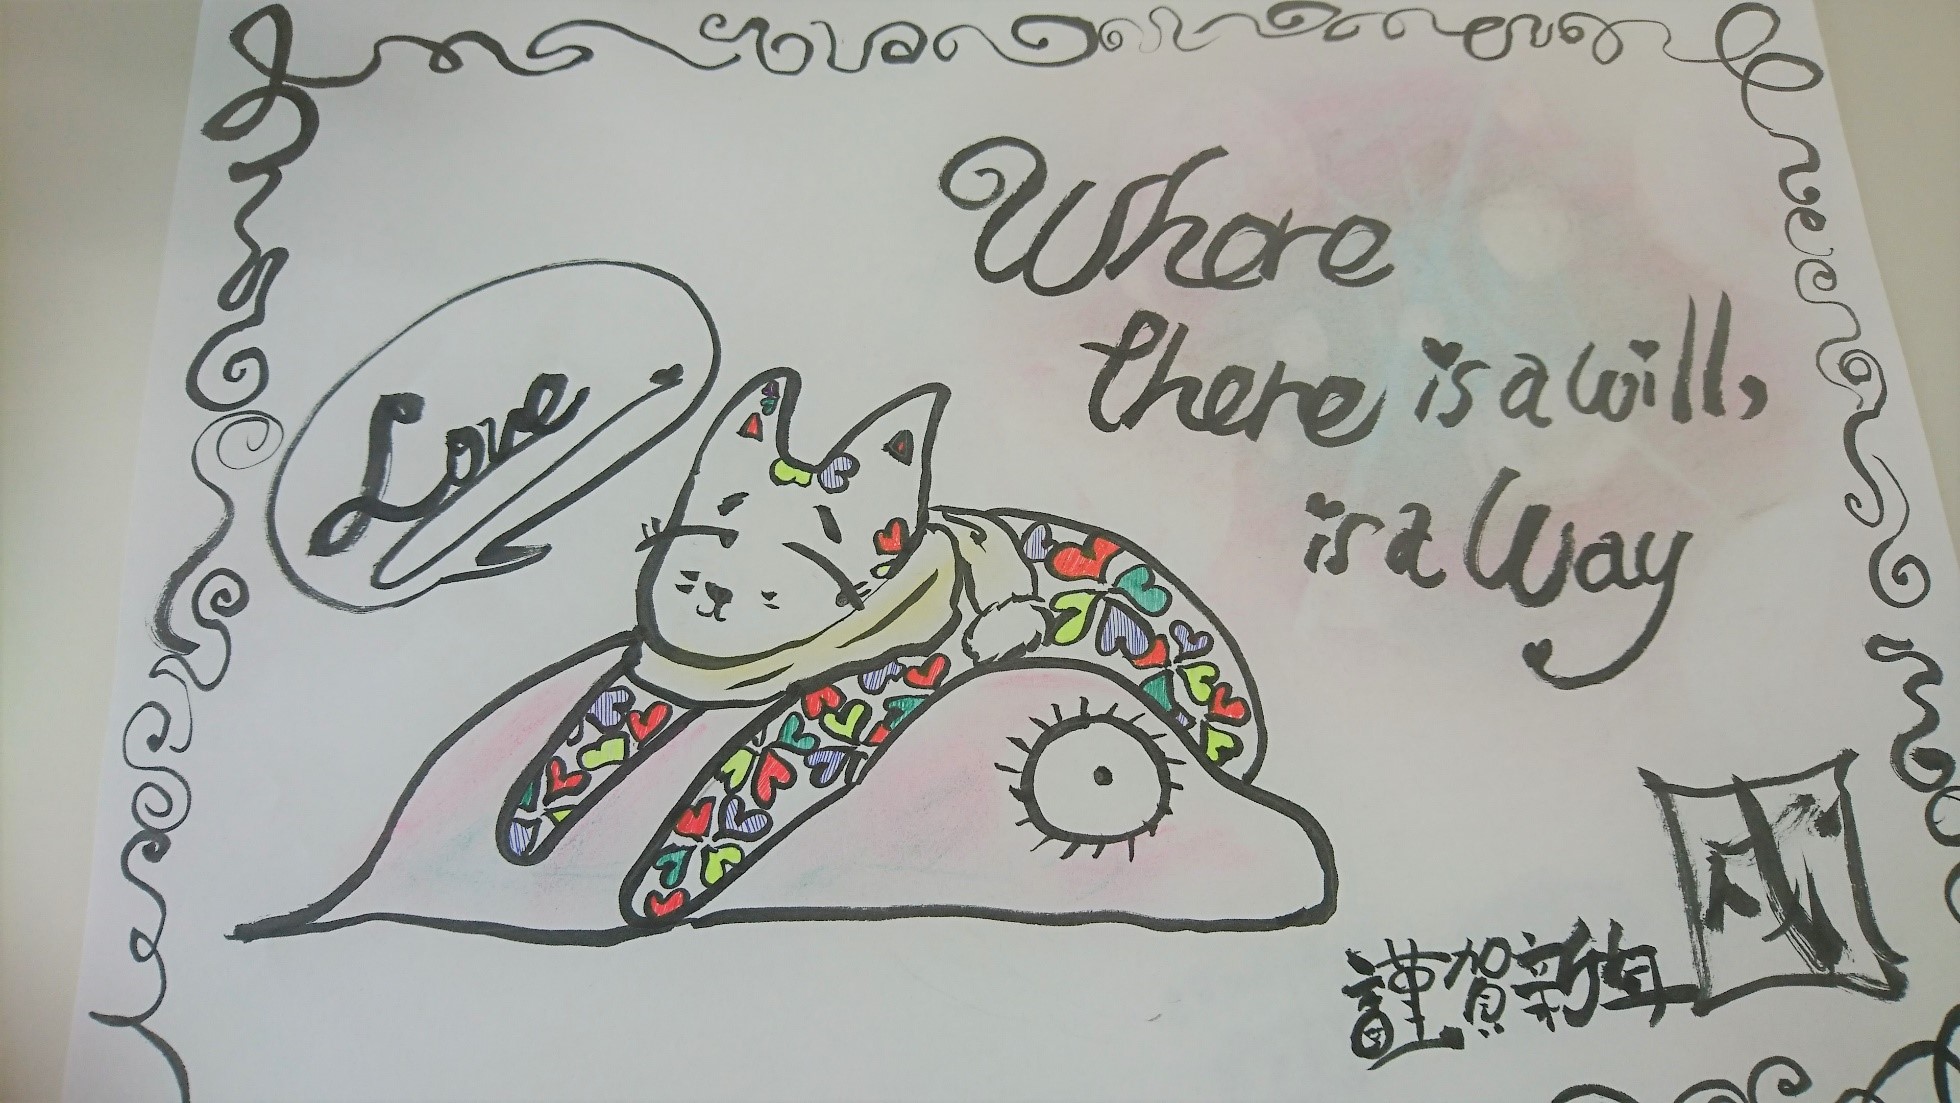 Love
Where
there is a will,
is a Way
戌
謹賀新年